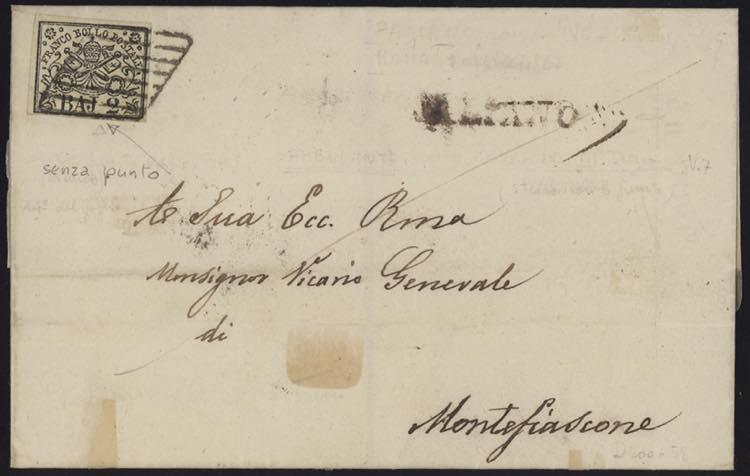 FRANCO BOLLO POSTALE
BAJ 2
senza punto
V.7
A Sua Ecc. Rma
Monsignor Vicario Generale
di
Montefiascone